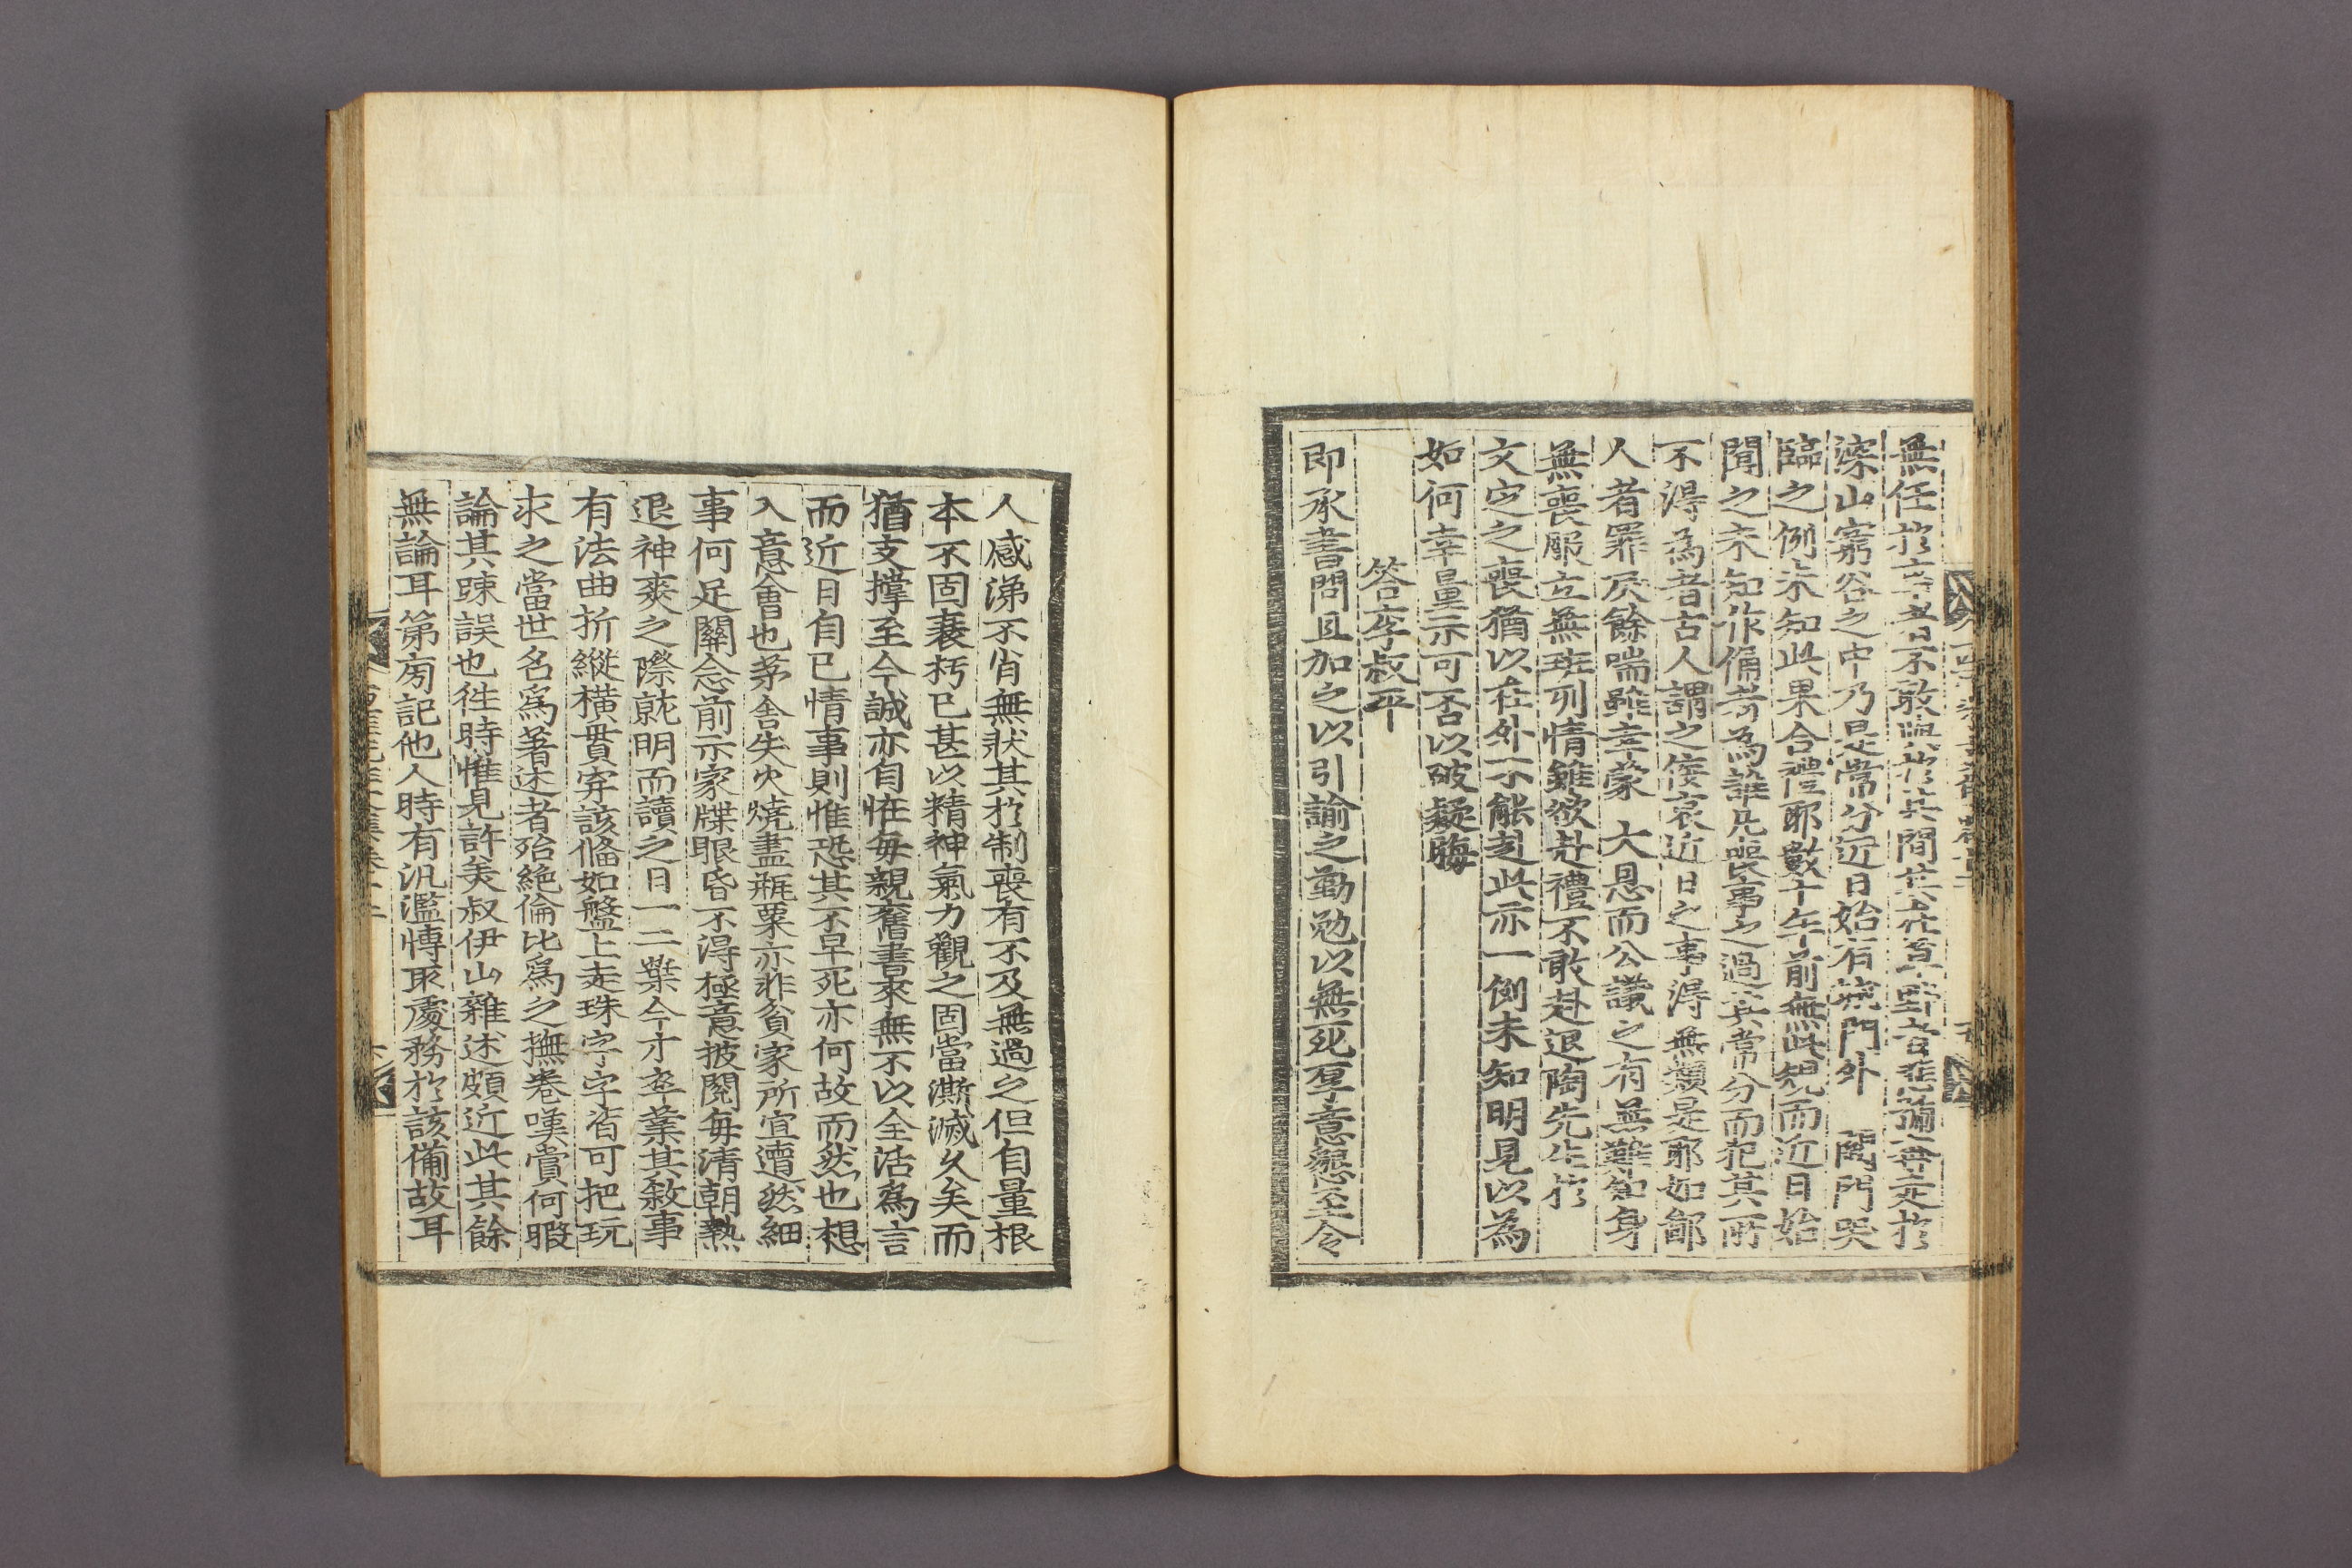 無任於
深山窮谷之中乃是常分近日始有 門外 闕門哭
臨之例未知此果合禮耶數十年前無此規而近日始
聞之未知作俑者爲誰凡喪事之過其常分而犯其所
不得爲者古人謂之倭哀近日之事得無類是耶如鄙
人者罪戾餘喘雖幸蒙 大恩而公議之有無難知身
無喪服立無班列情雖欲赴禮不敢赴退陶先生於
文定之喪猶以在外不能赴此亦一例未知明見以為
如何幸量示可否以破疑晦
答李叔平
即承書問且加之以引諭之勤勉以無死厚意懇至令
人感涕不肖無狀其於制喪有不及無過之但自量根
本不固衰朽已甚以精神氣力觀之固當澌滅久矣而
猶支撑至今誠亦自怪每親舊書來無不以全活爲言
而近日自己情事則惟恐其不早死亦何故而然也想
入意會也茅舍失火燒盡瓶粟亦非貧家所宜遭然細
事何足關念前示家牒眼昏不得極意披閱每清朝熱
退神爽之際就明而讀之日一二葉今才卒業其敘事
有法曲折縱橫貫穿該備如盤上走珠字字皆可把玩
求之當世名爲著述者殆絶倫比爲之撫卷嘆賞何暇
論其踈誤也徃時惟見許美叔伊山雜述頗近此其餘
無論耳第㫄記他人時有汎濫慱取處務於該備故耳